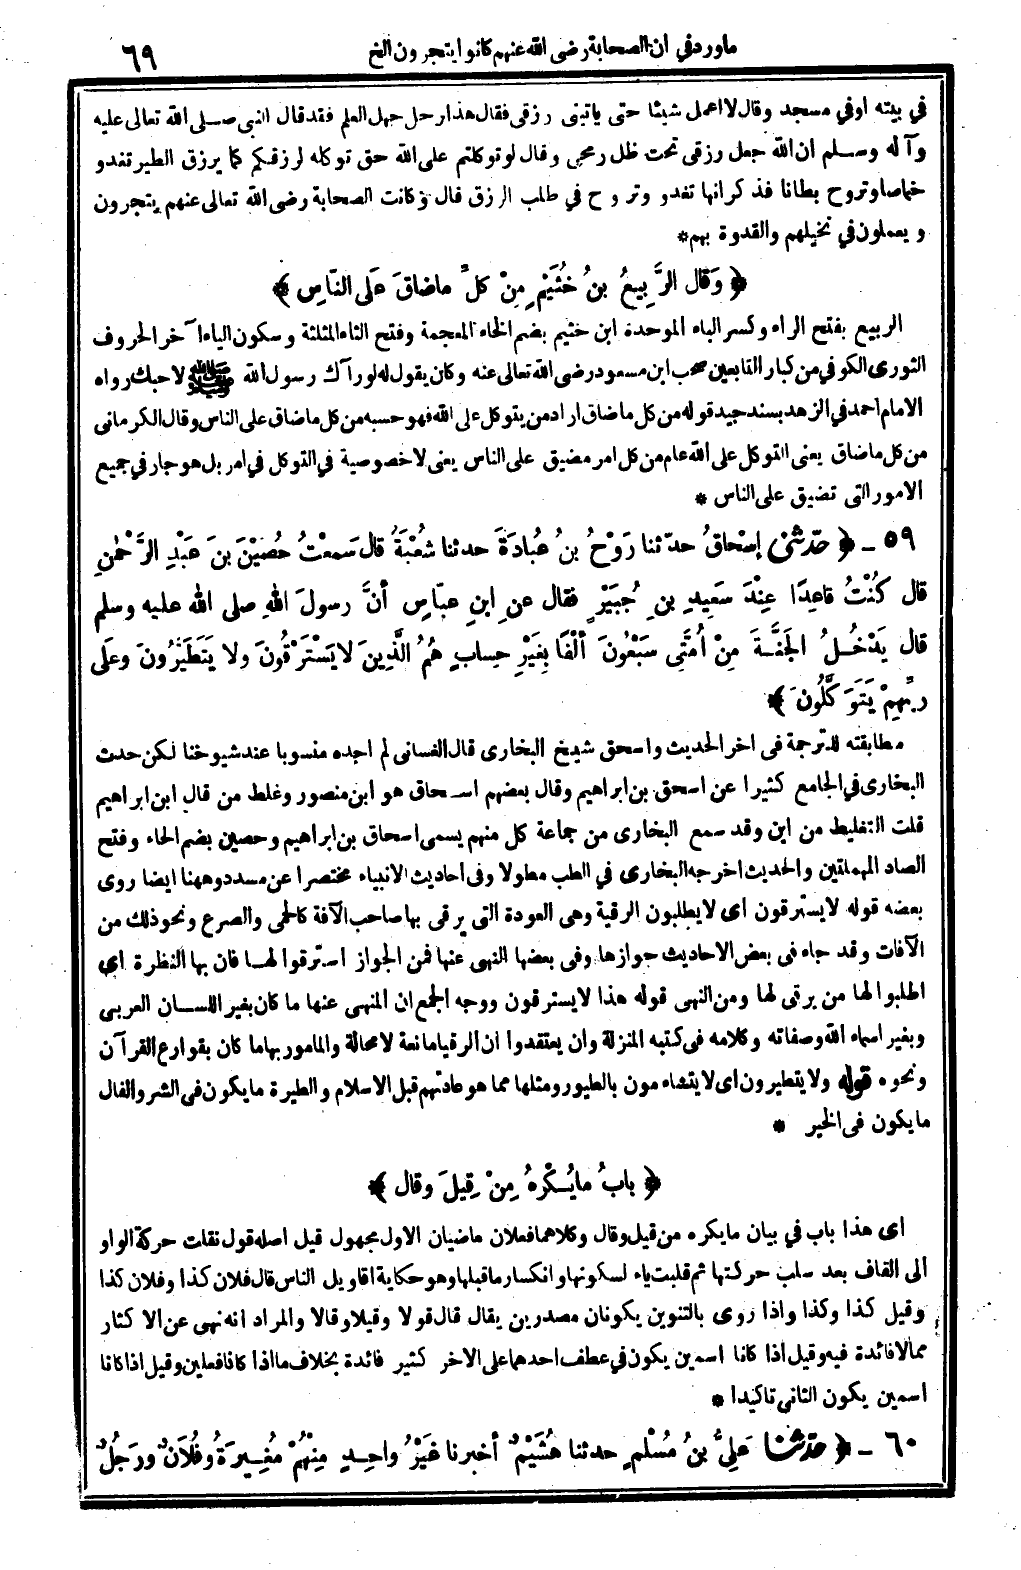 ماورد في ان الصحابة رضى الله عنهم كانوا يتجرون الخ
٦٩
في بيته او في مسجد وقال لا اعمل شيئا حتى ياتينى رزقى فقال هذا رجل جهل العلم فقد قال النبى صلى الله تعالى عليه
وآله وسلم ان الله جعل رزقى تحت ظل رمحى وقال لو توكلتم على الله حق توكله لرزقكم كما يرزق الطير تغدو
خماصا وتروح بطانا فذكر انها تغدو وتروح في طلب الرزق قال وكانت الصحابة رضى الله تعالى عنهم يتجرون
ويعملون في نخيلهم والقدوة بهم*
﴿ وَقال الرَّبِيعُ بنُ خُثَيْمٍ مِنْ كلِّ ماضاقَ عَلَى النّاسِ ﴾
الربيع بفتح الراء وكسر الباء الموحدة ابن خثيم بضم الخاء المعجمة وفتح الثاء المثلثة وسكون الياء آخر الحروف
الثورى الكوفي من كبار التابعين صحب ابن مسعود رضى الله تعالى عنه وكان يقول له لو رآك رسول الله ﷺ لاحبك رواه
الامام احمد في الزهد بسند جيد قوله من كل ماضاق اراد من يتوكل على الله فهو حسبه من كل ماضاق على الناس وقال الكرمانى
من كل ماضاق يعنى التوكل على الله عام من كل امر مضيق على الناس يعنى لاخصوصية في التوكل في امر بل هو جار في جميع
الامور التى تضيق على الناس *
٥٩ - ﴿ حدّثنى إسْحاقُ حدّثنا رَوْحُ بنُ عُبادَةَ حدثنا شُعْبَةُ قال سَمعْتُ حُصَيْنَ بنَ عَبْدِ الرَّحْمٰنِ
قال كُنْتُ قاعِدًا عِنْدَ سَعِيدِ بنِ جُبَيْرٍ فقال عنِ ابنِ عبّاسٍ أنَّ رسولَ اللهِ صلى الله عليه وسلم
قال يَدْخُلُ الجَنَّةَ مِنْ أُمَّتِى سَبْعُونَ ألْفًا بِغَيْرِ حِسابٍ هُمُ الَّذِينَ لايَسْتَرْقُونَ ولا يَتَطَيَّرُونَ وعَلَى
ربِّهِمْ يَتَوَكَّلُونَ ﴾
مطابقته للترجمة فى اخر الحديث واسحق شيخ البخارى قال الغسانى لم اجده منسوبا عند شيوخنا لكن حدث
البخارى في الجامع كثيرا عن اسحق بن ابراهيم وقال بعضهم اسحاق هو ابن منصور وغلط من قال ابن ابراهيم
قلت التغليط من اين وقد سمع البخارى من جماعة كل منهم يسمى اسحاق بن ابراهيم وحصين بضم الحاء وفتح
الصاد المهملتين والحديث اخرجه البخارى في الطب مطولا وفى احاديث الانبياء مختصرا عن مسدد وههنا ايضا روى
بعضه قوله لايسترقون اى لايطلبون الرقية وهى العوذة التى يرقى بها صاحب الآفة كالحمى والصرع ونحو ذلك من
الآفات وقد جاء فى بعض الاحاديث جوازها وفى بعضها النهى عنها فمن الجواز استرقوا لها فان بها النظرة اى
اطلبوا لها من يرقى لها ومن النهى قوله هذا لايسترقون ووجه الجمع ان المنهى عنها ما كان بغير اللسان العربى
وبغير اسماء الله وصفاته وكلامه فى كتبه المنزلة وان يعتقدوا ان الرقيا مانعة لامحالة والمامور بها ما كان بقوارع القرآن
ونحوه قوله ولايتطيرون اى لايتشاءمون بالطيور ومثلها مما هو عادتهم قبل الاسلام والطيرة مايكون فى الشر والفال
مايكون فى الخير *
﴿ بابُ مايُكْرَهُ مِنْ قِيلَ وقال ﴾
اى هذا باب في بيان مايكره من قيل وقال وكلاهما فعلان ماضيان الاول مجهول قيل اصله قول نقلت حركة الواو
الى القاف بعد سلب حركتها ثم قلبت ياء لسكونها وانكسار ماقبلها وهو حكاية اقاويل الناس قال فلان كذا وفلان كذا
وقيل كذا وكذا واذا روى بالتنوين يكونان مصدرين يقال قال قولا وقيلا وقالا والمراد انه نهى عن الاكثار
ممالافائدة فيه وقيل اذا كانا اسمين يكون في عطف احدهما على الاخر كثير فائدة بخلاف مااذا كانا فعلين وقيل اذا كانا
اسمين يكون الثانى تاكيدا *
٦٠ - ﴿ حدّثنا عَلِيُّ بنُ مُسْلِمٍ حدثنا هُشَيْمٌ أخبرنا غَيْرُ واحِدٍ مِنْهُمْ مُغِيرَةُ وفُلَانٌ ورَجُلٌ